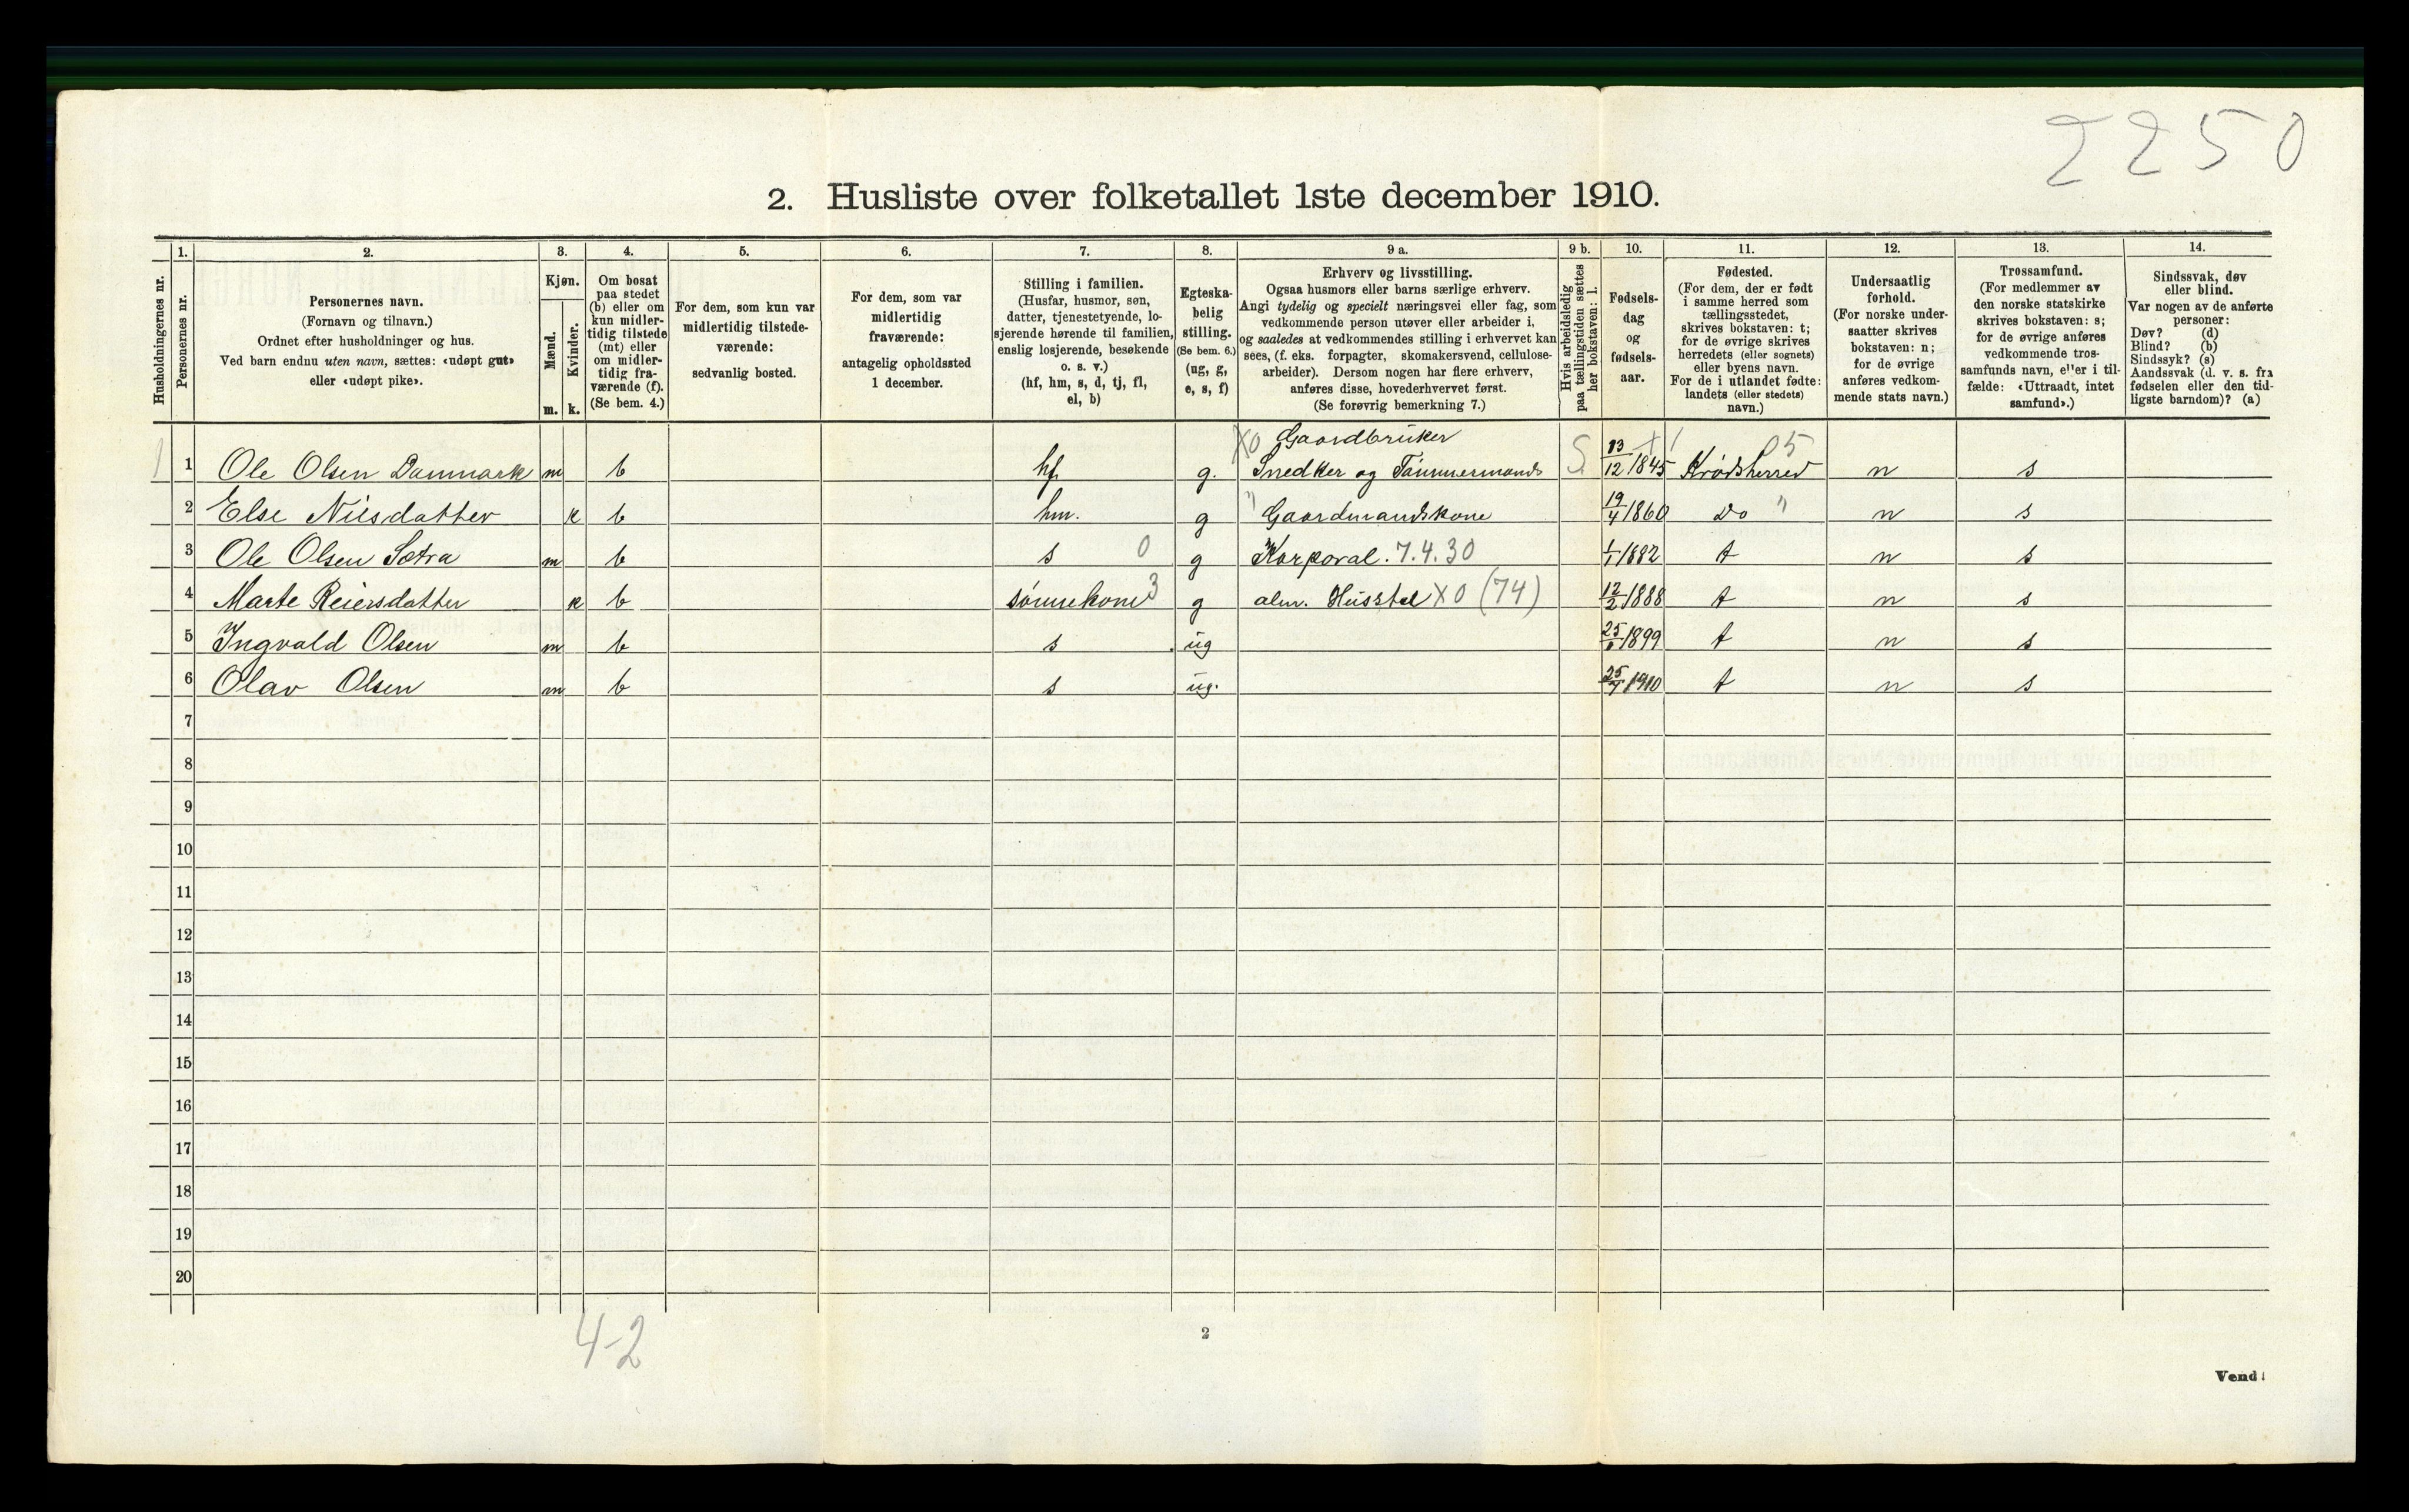 2250
2. Husliste over folketallet 1ste december 1910.
Husholdningernes nr.
1. Personernes nr.
2. Personernes navn.
(Fornavn og tilnavn.)
Ordnet efter husholdninger og hus.
Ved barn endnu uten navn, sættes: «udøpt gut»
eller «udøpt pike».
3. Kjøn.
Mænd. m.
Kvinder. k.
4. Om bosat
paa stedet
(b) eller om
kun midler-
tidig tilstede
(mt) eller
om midler-
tidig fra-
værende (f).
(Se bem. 4.)
5. For dem, som kun var
midlertidig tilstede-
værende:
sedvanlig bosted.
6. For dem, som var
midlertidig
fraværende:
antagelig opholdssted
1 december.
7. Stilling i familien.
(Husfar, husmor, søn,
datter, tjenestetyende, lo-
sjerende hørende til familien,
enslig losjerende, besøkende
o. s. v.)
(hf, hm, s, d, tj, fl,
el, b)
8. Egteska-
belig
stilling.
(Se bem. 6.)
(ug, g,
e, s, f)
9 a. Erhverv og livsstilling.
Ogsaa husmors eller barns særlige erhverv.
Angi tydelig og specielt næringsvei eller fag, som
vedkommende person utøver eller arbeider i,
og saaledes at vedkommendes stilling i erhvervet kan
sees, (f. eks. forpagter, skomakersvend, cellulose-
arbeider). Dersom nogen har flere erhverv,
anføres disse, hovederhvervet først.
(Se forøvrig bemerkning 7.)
9 b. Hvis arbeidsledig
paa tællingstiden sættes
her bokstaven: l.
10. Fødsels-
dag
og
fødsels-
aar.
11. Fødested.
(For dem, der er født
i samme herred som
tællingsstedet,
skrives bokstaven: t;
for de øvrige skrives
herredets (eller sognets)
eller byens navn.
For de i utlandet fødte:
landets (eller stedets)
navn.)
12. Undersaatlig
forhold.
(For norske under-
saatter skrives
bokstaven: n;
for de øvrige
anføres vedkom-
mende stats navn.)
13. Trossamfund.
(For medlemmer av
den norske statskirke
skrives bokstaven: s;
for de øvrige anføres
vedkommende tros-
samfunds navn, eller i til-
fælde: «Uttraadt, intet
samfund».)
14. Sindssvak, døv
eller blind.
Var nogen av de anførte
personer:
Døv? (d)
Blind? (b)
Sindssyk? (s)
Aandssvak (d. v. s. fra
fødselen eller den tid-
ligste barndom)? (a)
X0 Gaardbruker
1 1 Ole Olsen Danmark m b hf g. Snedker og Tømmermands S 13/12 1845 Krødsherred 05 n s
2 Else Nilsdatter k b hm. g " Gaardmandskone 19/4 1860 Do " n s
3 Ole Olsen Sætra m b s 0 g Korporal. 7.4.30 1/1 1882 t n s
4 Marte Reiersdatter k b sønnekone 3 g alm. Husstel X0 (74) 12/2 1888 t n s
5 Ingvald Olsen m b s ug 1899 t n s
6 Olav Olsen m b s ug. 1910 t n s
7
8
9
10
11
12
13
14
15
16
17
18
19
20
4-2
2
Vend!